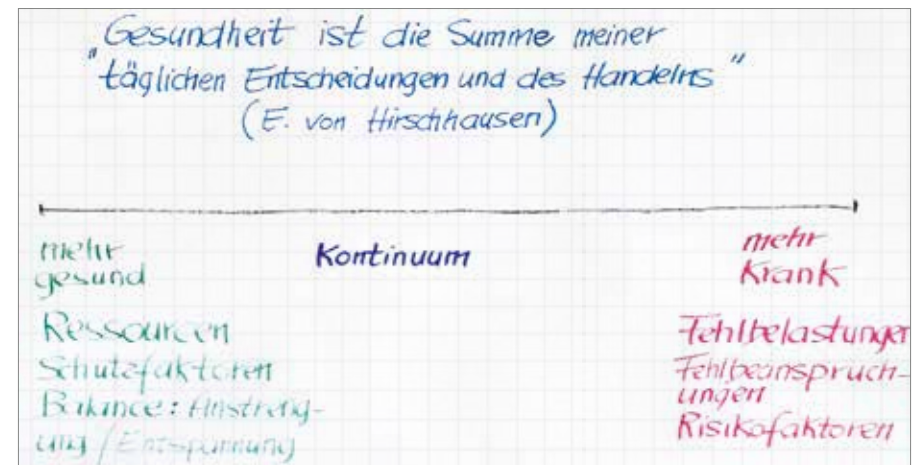 „Gesundheit ist die Summe meiner
täglichen Entscheidungen und des Handelns"
(E. von Hirschhausen)
mehr
gesund
Kontinuum
mehr
Krank
Ressourcen
Schutzfaktoren
Balance: Anstreng-
ung/Entspannung
Fehlbelastungen
Fehlbeanspruch-
ungen
Risikofaktoren